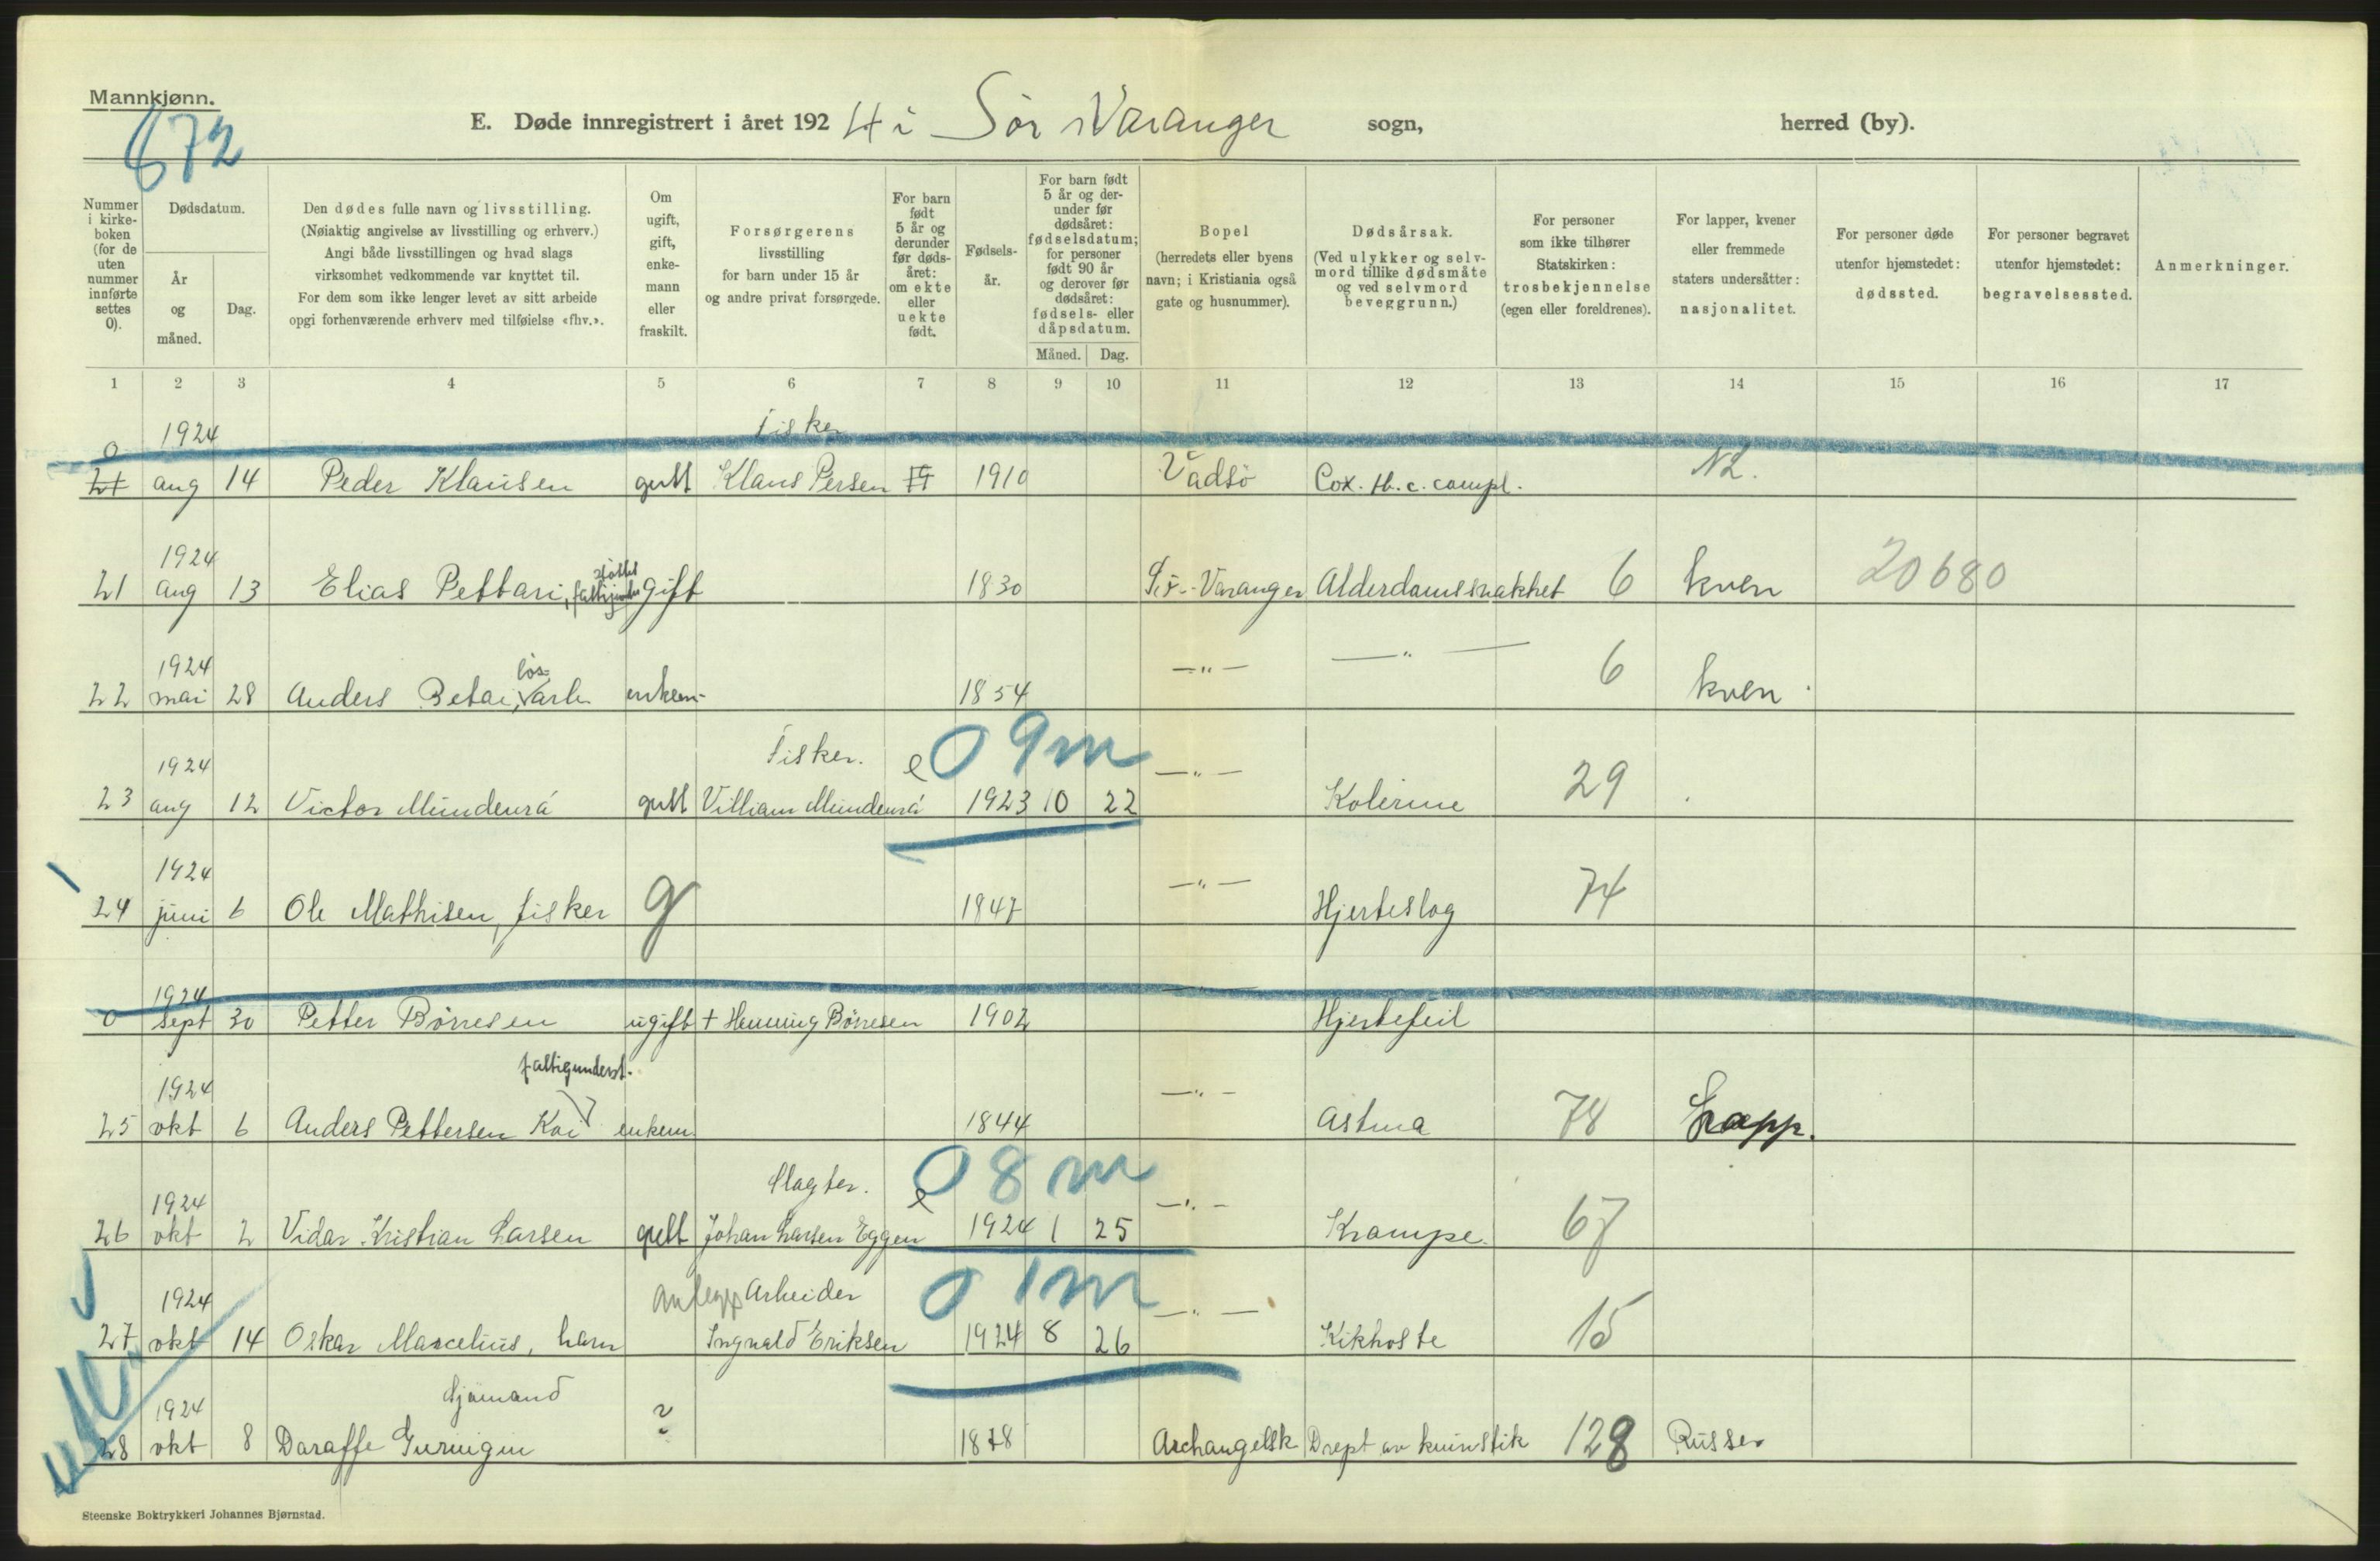 Mannkjønn.
672
E. Døde innregistrert i året 1924 i Sör Varanger sogn, herred (by).
Nummer i kirkeboken (for de uten nummer innførte settes 0).
Dødsdatum.
År og måned.
Dag.
Den dødes fulle navn og livsstilling.
(Nøiaktig angivelse av livsstilling og erhverv.)
Angi både livsstillingen og hvad slags
virksomhet vedkommende var knyttet til.
For dem som ikke lenger levet av sitt arbeide
opgi forhenværende erhverv med tilføielse «fhv.».
Om ugift, gift, enkemann eller fraskilt.
Forsørgerens
livsstilling
for barn under 15 år
og andre privat forsørgede.
For barn født 5 år og derunder før dødsåret: om ekte eller uekte født.
Fødselsår.
For barn født 5 år og derunder før dødsåret: fødselsdatum; for personer født 90 år og derover før dødsåret: fødsels- eller dåpsdatum.
Måned. Dag.
Bopel
(herredets eller byens
navn; i Kristiania også
gate og husnummer).
Dødsårsak.
(Ved ulykker og selvmord tillike dødsmåte og ved selvmord beveggrunn.)
For personer
som ikke tilhører
Statskirken:
trosbekjennelse
(egen eller foreldrenes).
For lapper, kvener
eller fremmede
staters undersåtter:
nasjonalitet.
For personer døde
utenfor hjemstedet:
dødssted.
For personer begravet
utenfor hjemstedet:
begravelsessted.
Anmerkninger.
1 2 3 4 5 6 7 8 9 10 11 12 13 14 15 16 17
0 1924 Fisker
21 aug 14 Peder Klausen gutt Klaus Persen 1910 Vadsö Cox. tb. c. compl. NL.
1924
21 aug 13 Elias Pettari, gift 1830 Sör-Varanger Alderdomssvakhet 6 kven 20680
1924 lös
22 mai 28 Anders Betai, enkem- 1854 -"- -"- 6 kven
1924 Fisker. e 0 9 m
23 aug 12 Victor Mundenrá gutt Villiam Mundenrá 1923 10 22 -"- Kolerine 29
1924
24 juni 6 Ole Mathisen, fisker g 1847 -"- Hjerteslag 74
1924
0 sept 30 Petter Börresen ugift + Henning Börresen 1902 -"- Hjertefeil
1924 fattigunderst.
25 okt 6 Anders Pettersen Koi enkem. 1844 -"- Astma 78 Lapp.
1924 Slagter. e 0 8 m
26 okt 2 Vidar Kristian Larsen gutt Johan Larsen Eggen 1924 1 25 -"- Krampe. 67
1924 anlegg Arbeider 0 1 m
27 okt 14 Oskar Marcelius, barn Ingvald Eriksen 1924 8 26 -"- Kikhoste 15
1924 Sjömand ?
28 okt 8 Daraffe Guringin 1878 Archangelsk Drept av knivstik 128 Russer
Steenske Boktrykkeri Johannes Bjørnstad.